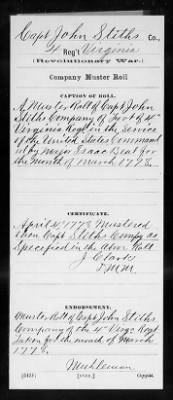 Capt John Stiths Co.,
4 Reg't Virginia
(Revolutionary War.)
Company Muster Roll
CAPTION OF ROLL.
A Muster Roll of Capt John
Stiths Company of Foot of 4th
Virginia Regt in the Service
of the United States Command
ed by Major Isaac Beal for
the month of March 1778.
CERTIFICATE.
April 4, 1778 Mustered
then Capt Stiths Compy as
Specified in the above Roll
J Clark
D.M.M.
ENDORSEMENT.
Muster Roll of Capt John Stiths
Company of the 4 Virga Regt
taken for the month of March
1778.
Muhleman
Copyist.